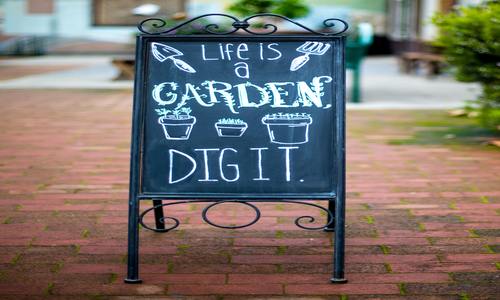 LIFE IS
a
GARDEN,
DIG IT.